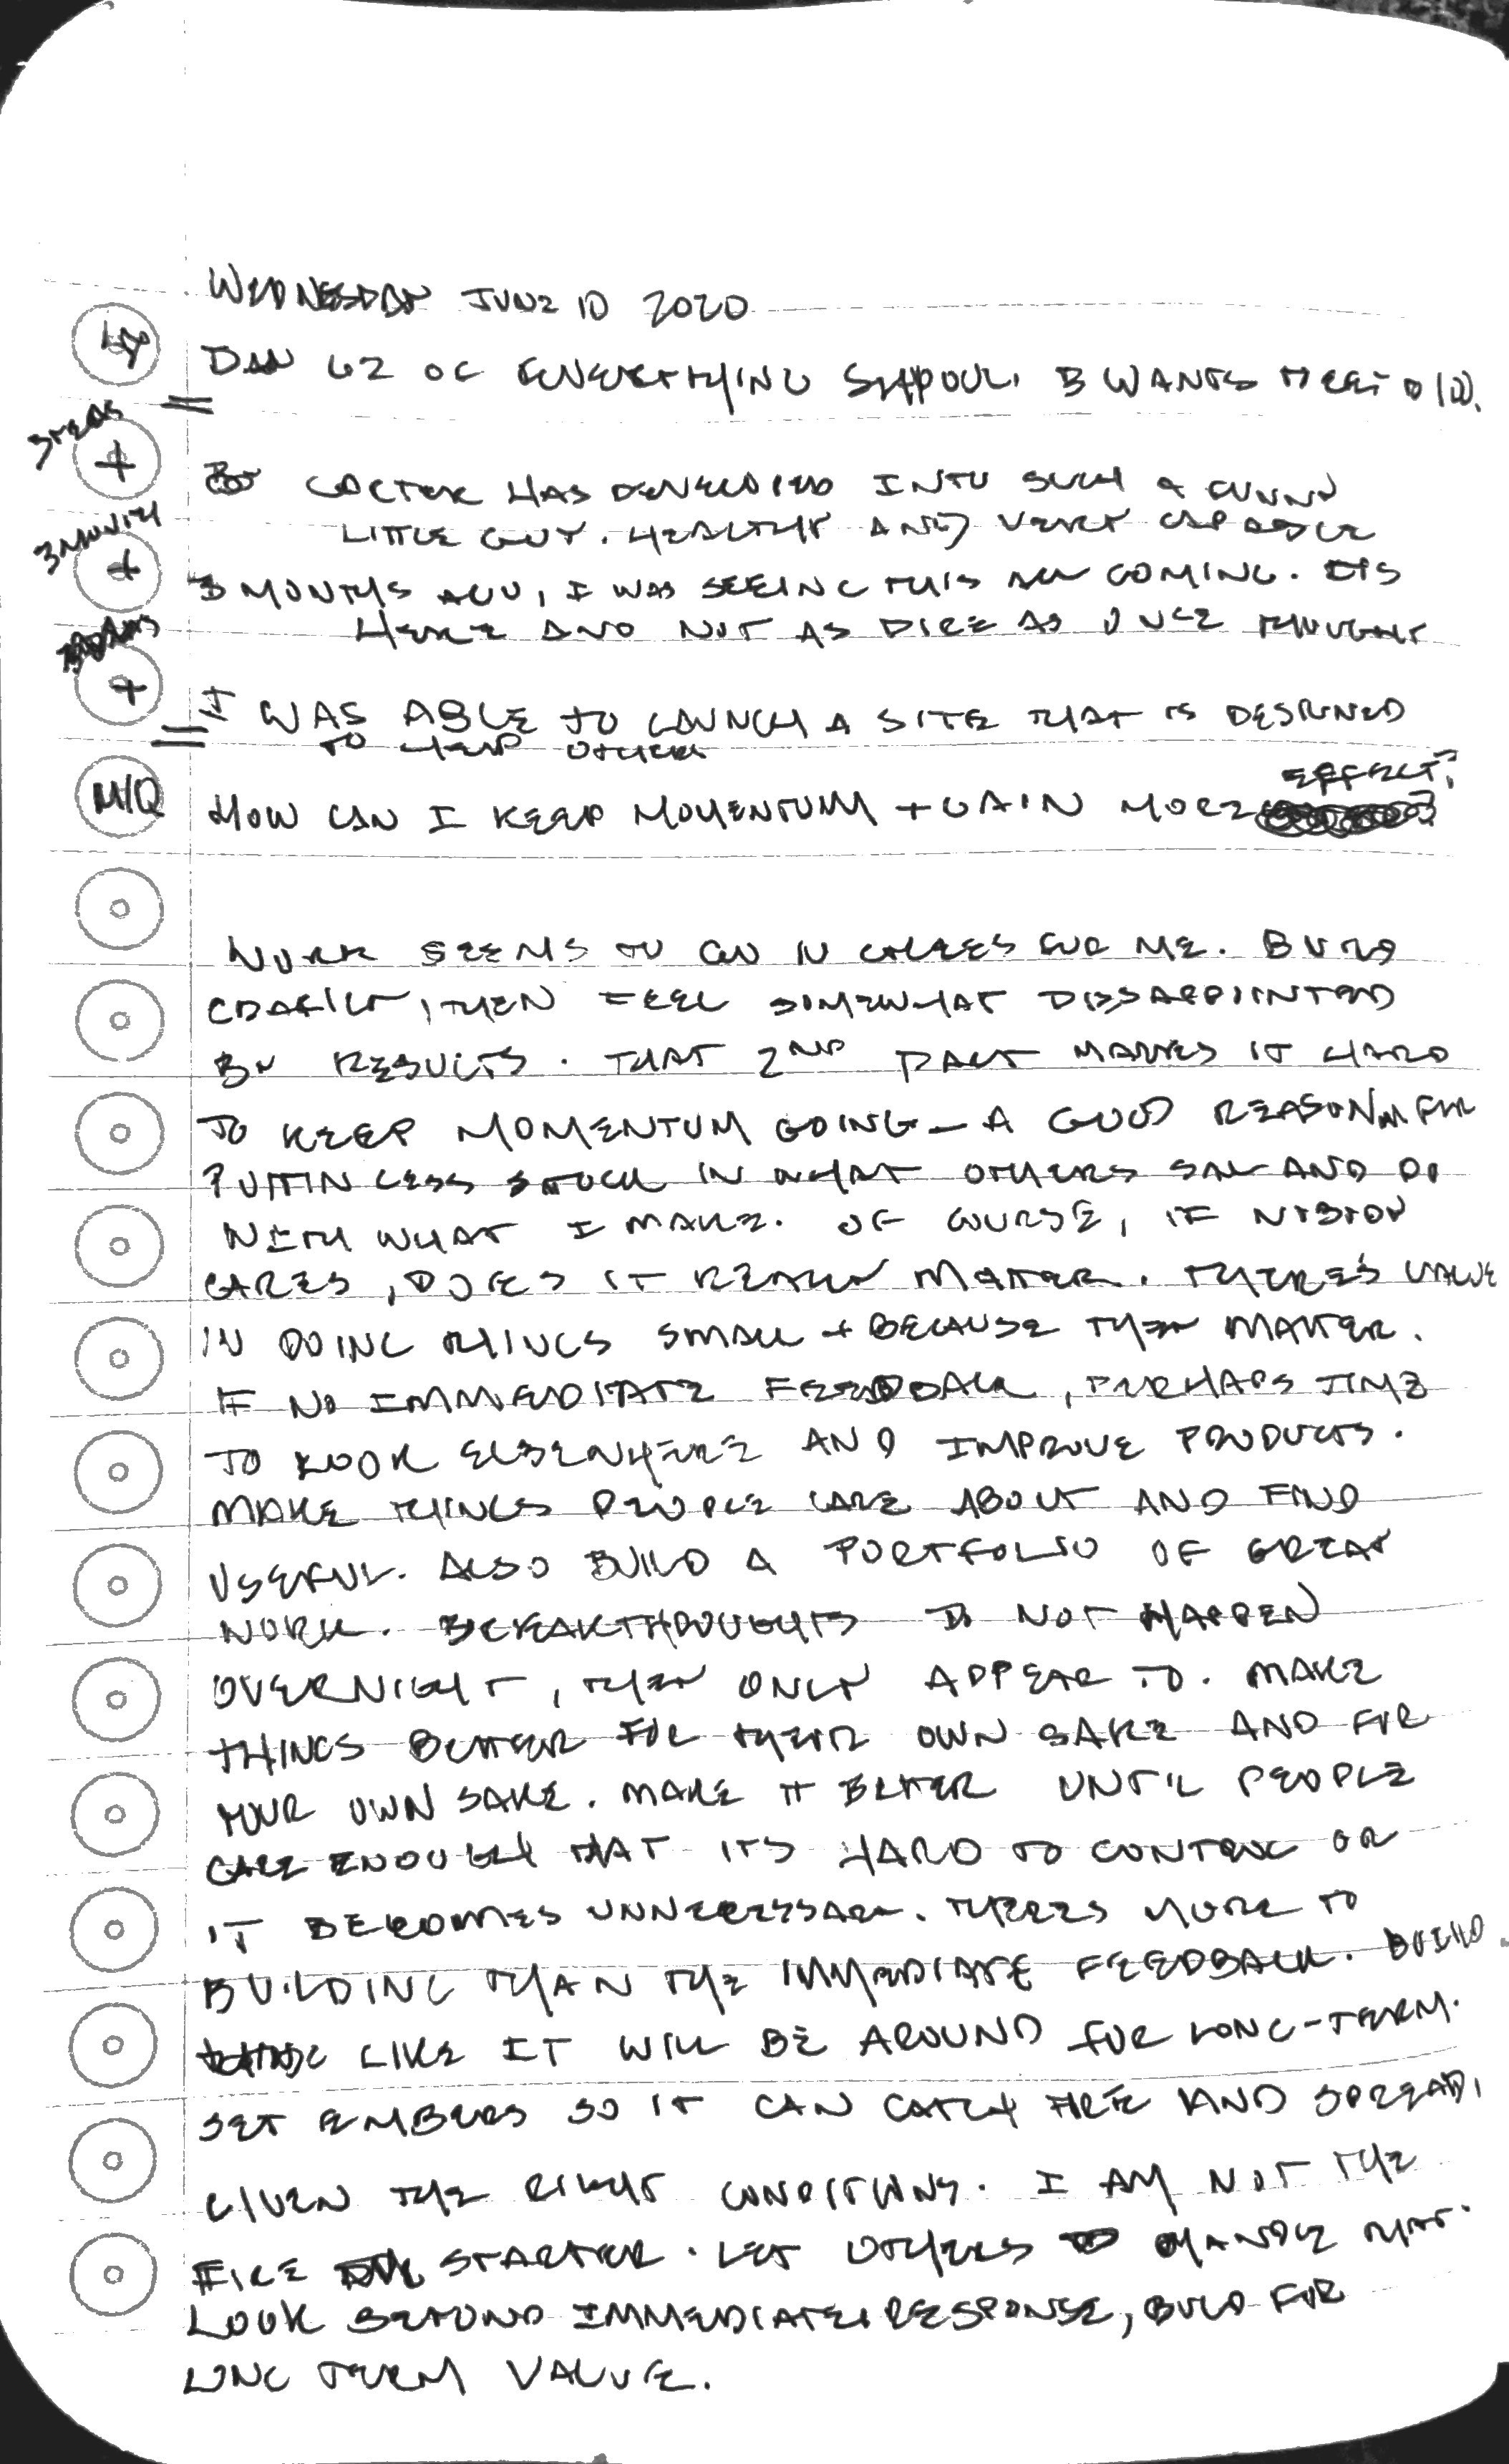 WEDNESDAY JUNE 10 2020
DAY 62 OF EVERYTHING B WANTS
3 YEARS
+
HAS DEVELOPED INTO SUCH A FUNNY
LITTLE GUY. HEALTHY AND VERY CAPABLE
3 MONTHS
+
3 MONTHS AGO, I WAS SEEING THIS ALL COMING. ITS
HERE AND NOT AS DIRE AS ONCE THOUGHT
+
I WAS ABLE TO LAUNCH A SITE THAT IS DESIGNED
TO HELP OTHERS
EFFECT?
M/Q
HOW CAN I KEEP MOMENTUM + GAIN MORE
WORK SEEMS TO GO IN CYCLES FOR ME. BUILD
THEN FEEL SOMEWHAT DISSAPPOINTED
BY RESULTS. THAT 2ND PART MAKES IT HARD
TO KEEP MOMENTUM GOING - A GOOD REASON FOR
PUTTIN LESS STOCK IN WHAT OTHERS SAY AND DO
WITH WHAT I MAKE. OF COURSE, IF NOBODY
CARES, DOES IT REALLY MATTER. THERE'S VALUE
IN DOING THINGS SMALL + BECAUSE THEY MATTER.
IF NO IMMEDIATE FEEDBACK, PERHAPS TIME
TO LOOK ELSEWHERE AND IMPROVE PRODUCTS.
MAKE THINGS PEOPLE CARE ABOUT AND FIND
USEFUL. ALSO BUILD A PORTFOLIO OF GREAT
WORK. BREAKTHROUGHS DO NOT HAPPEN
OVERNIGHT, THEY ONLY APPEAR TO. MAKE
THINGS BETTER FOR THEIR OWN SAKE AND FOR
YOUR OWN SAKE. MAKE IT BETTER UNTIL PEOPLE
CARE ENOUGH THAT ITS HARD TO CONTROL OR
IT BECOMES UNNECESSARY. THERES MORE TO
BUILDING THAN THE IMMEDIATE FEEDBACK. BUILD
LIKE IT WILL BE AROUND FOR LONG-TERM.
SET EMBERS SO IT CAN CATCH FIRE AND SPREAD,
GIVEN THE RIGHT CONDITIONS. I AM NOT THE
FIRE STARTER. LET OTHERS HANDLE THAT.
LOOK BEYOND IMMEDIATE RESPONSE, BUILD FOR
LONG TERM VALUE.